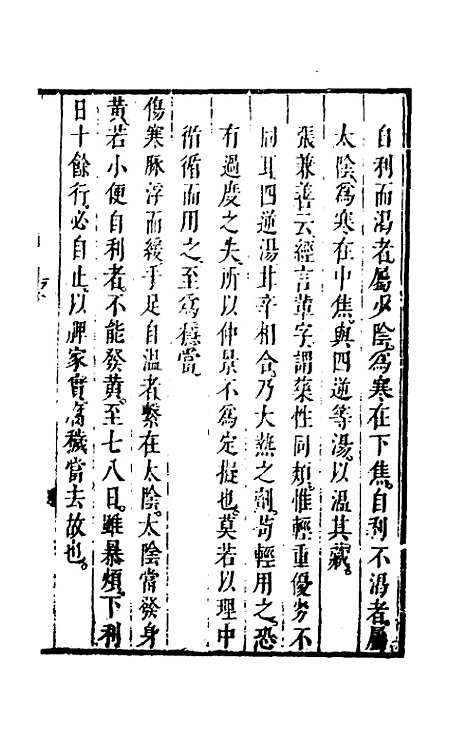 自利而渴者屬少陰為寒在下焦自利不渴者屬
太陰為寒在中焦與四逆等湯以温其藏
張兼善云經言輩字謂藥性同類惟輕重優劣不
同耳四逆湯甘辛相合乃大熱之劑苟輕用之恐
有過度之失所以仲景不為定擬也莫若以理中
循循而用之至為穩當
傷寒脉浮而緩手足自温者繫在太陰太陰當發身
黄若小便自利者不能發黄至七八日雖暴煩下利
日十餘行必自止以脾家實腐穢當去故也